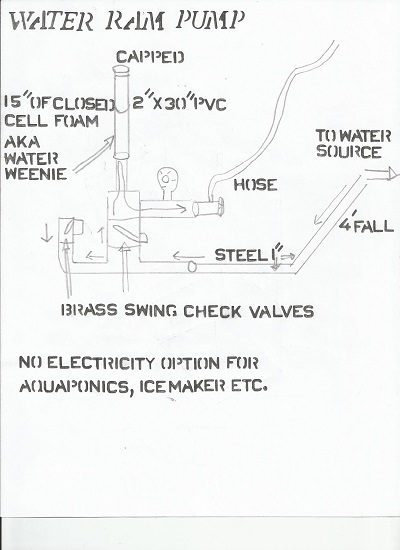 WATER RAM PUMP
CAPPED
15" OF CLOSED
CELL FOAM
AKA
WATER
WEENIE
2" X 30" PVC
TO WATER
SOURCE
HOSE
4' FALL
STEEL 1"
BRASS SWING CHECK VALVES
NO ELECTRICITY OPTION FOR
AQUAPONICS, ICE MAKER ETC.